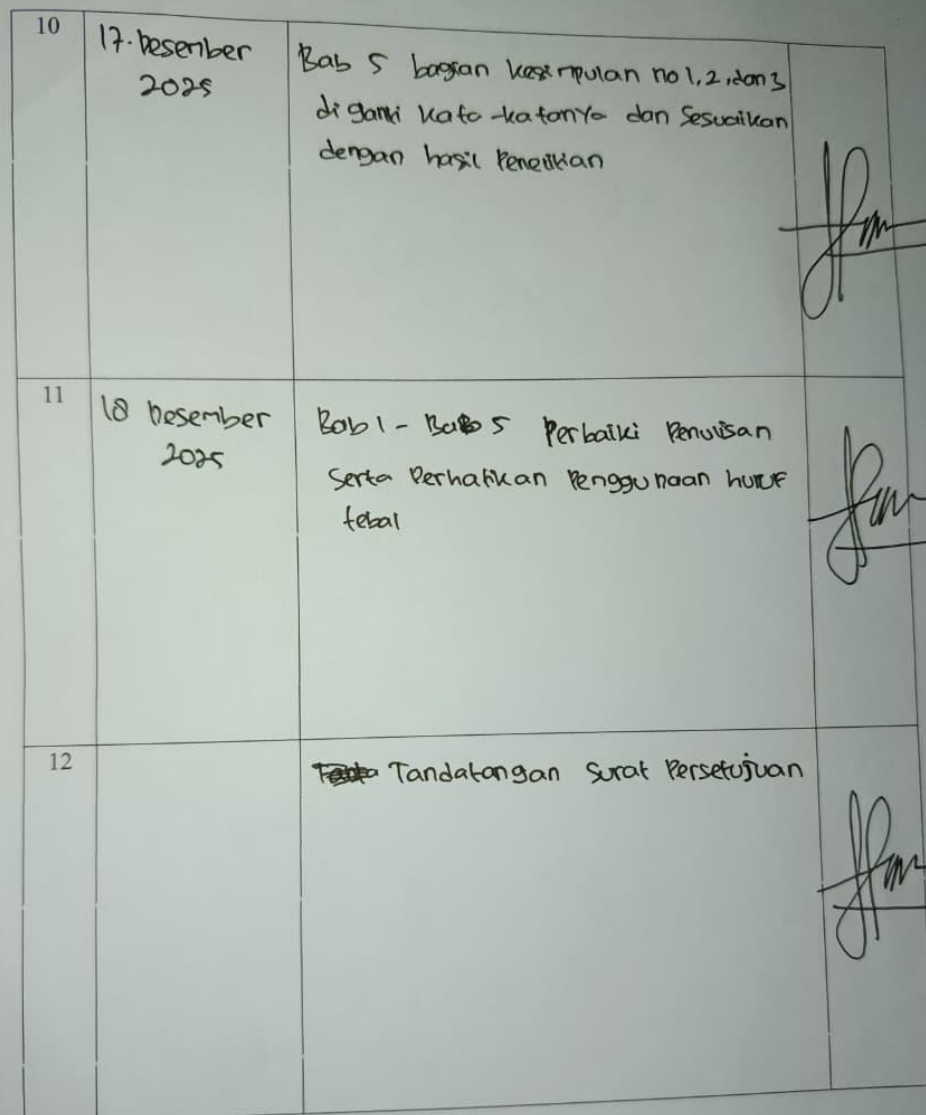 10
17. Desember
2025
Bab 5 bagian kesimpulan no 1, 2, dan 3
di ganti kata-katanya dan Sesuaikan
dengan hasil Penelitian
11
18 Desember
2025
Bab 1 - Bab 5 Perbaiki Penulisan
Serta Perhatikan Penggunaan huruf
tebal
12
Tandatangan Surat Persetujuan